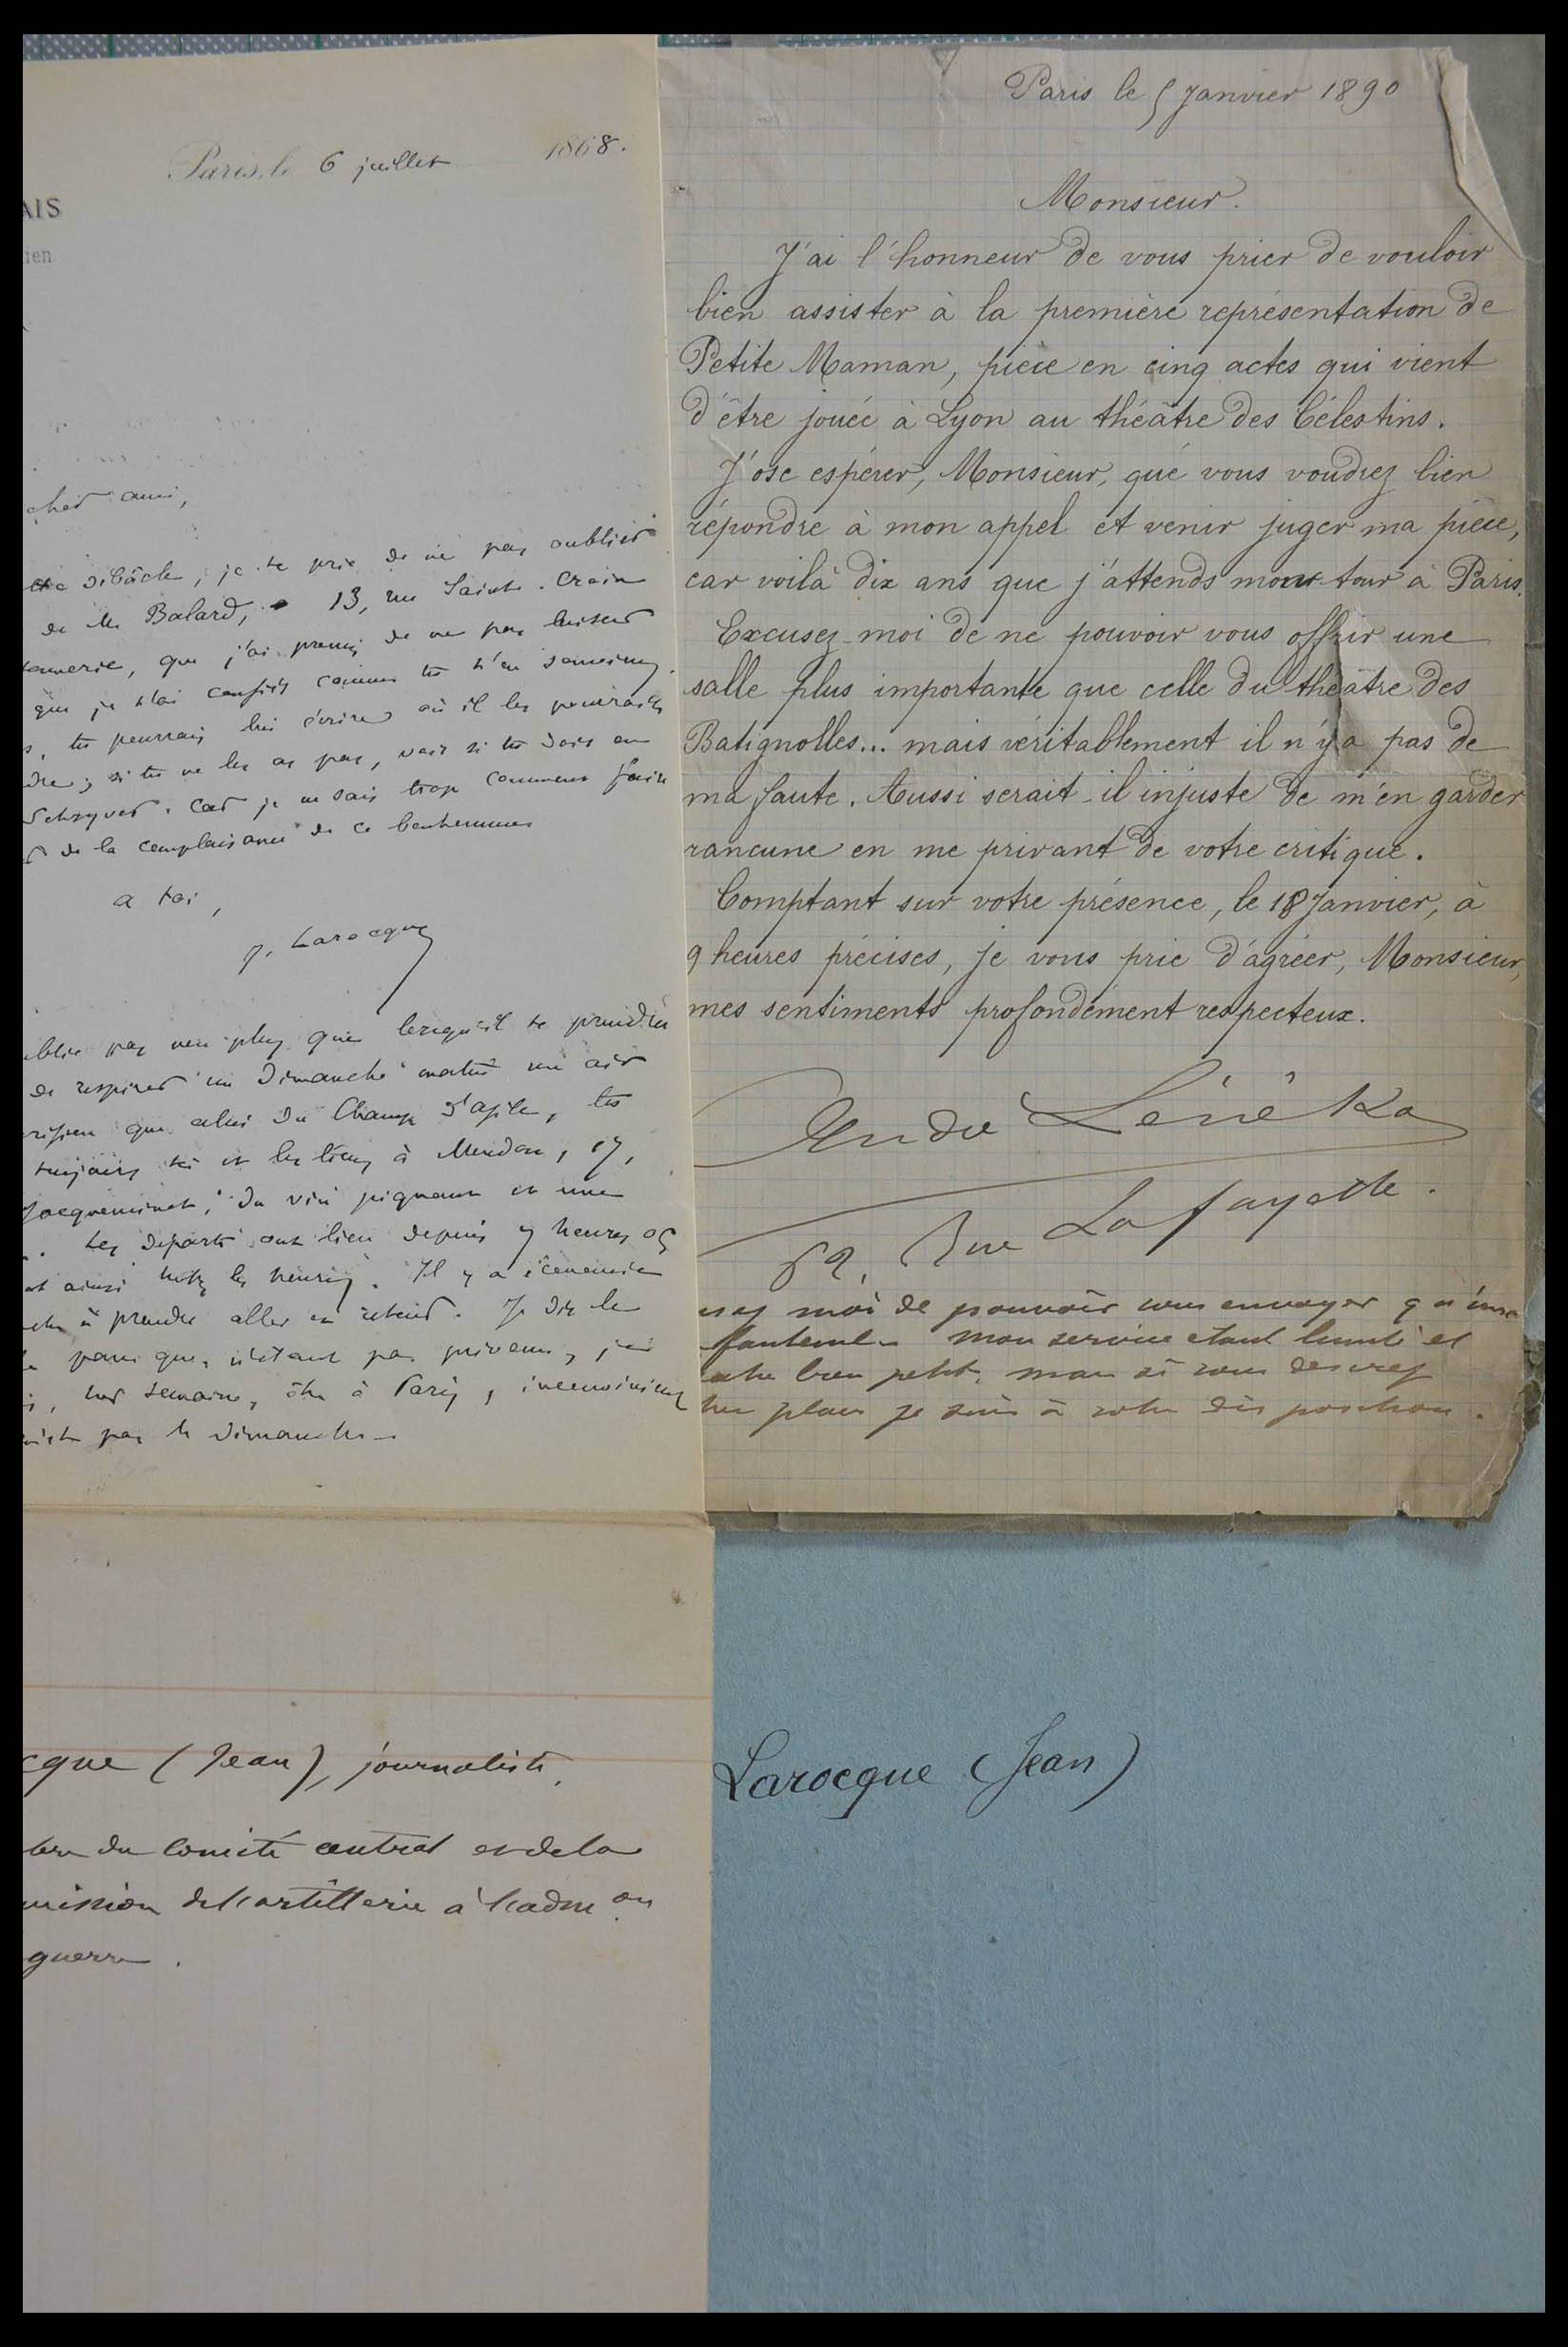 Paris, le 6 juillet 1868.
AIS
ien.
cher ami,
débâcle, je te prie de ne pas oublier
de M. Balard, 13, rue Sainte-Croix
que j'ai promis de ne pas laisser
que je t'ai confiés comme tu t'en souviens.
tu pourrais lui écrire où il les pourrait
si tu ne les as pas, vois si tu dois en
Schryver. Car je ne sais trop comment faire
de la complaisance de ce bonhomme
a toi,
J. Larocque
pas non plus que lorsqu'il te prendra
de respirer un Dimanche matin un air
que celui du Champ d'asile, tu
toujours toi et les tiens à Meudon, 17,
Jacqueminot, du vin piquant et une
Les départs ont lieu depuis 7 heures 05
et ainsi toutes les heures. Il y a économie
à prendre aller et retour. Je dis le
parce que, n'étant pas prévenu, j'ai
semaine, être à Paris,
pas le Dimanche.
cque (Jean), journaliste,
bre du Comité central et de la
mission de l'artillerie à l'adm on
guerre.
Paris le 5 Janvier 1890
Monsieur.
J'ai l'honneur de vous prier de vouloir
bien assister à la première représentation de
Petite Maman, pièce en cinq actes qui vient
d'être jouée à Lyon au théâtre des Célestins.
J'ose espérer, Monsieur, que vous voudrez bien
répondre à mon appel et venir juger ma pièce,
car voilà dix ans que j'attends mon tour à Paris.
Excusez-moi de ne pouvoir vous offrir une
salle plus importante que celle du théâtre des
Batignolles... mais véritablement il n'y a pas de
ma faute. Aussi serait-il injuste de m'en garder
rancune en me privant de votre critique.
Comptant sur votre présence, le 18 Janvier, à
9 heures précises, je vous prie d'agréer, Monsieur,
mes sentiments profondément respecteux.
André Lénéka
62, Rue Lafayette.
usez moi de pouvoir vous envoyer qu'un
fauteuil mon service etant limité et
bien petit, mais si vous desirez
place je suis à votre disposition.
Larocque (Jean)